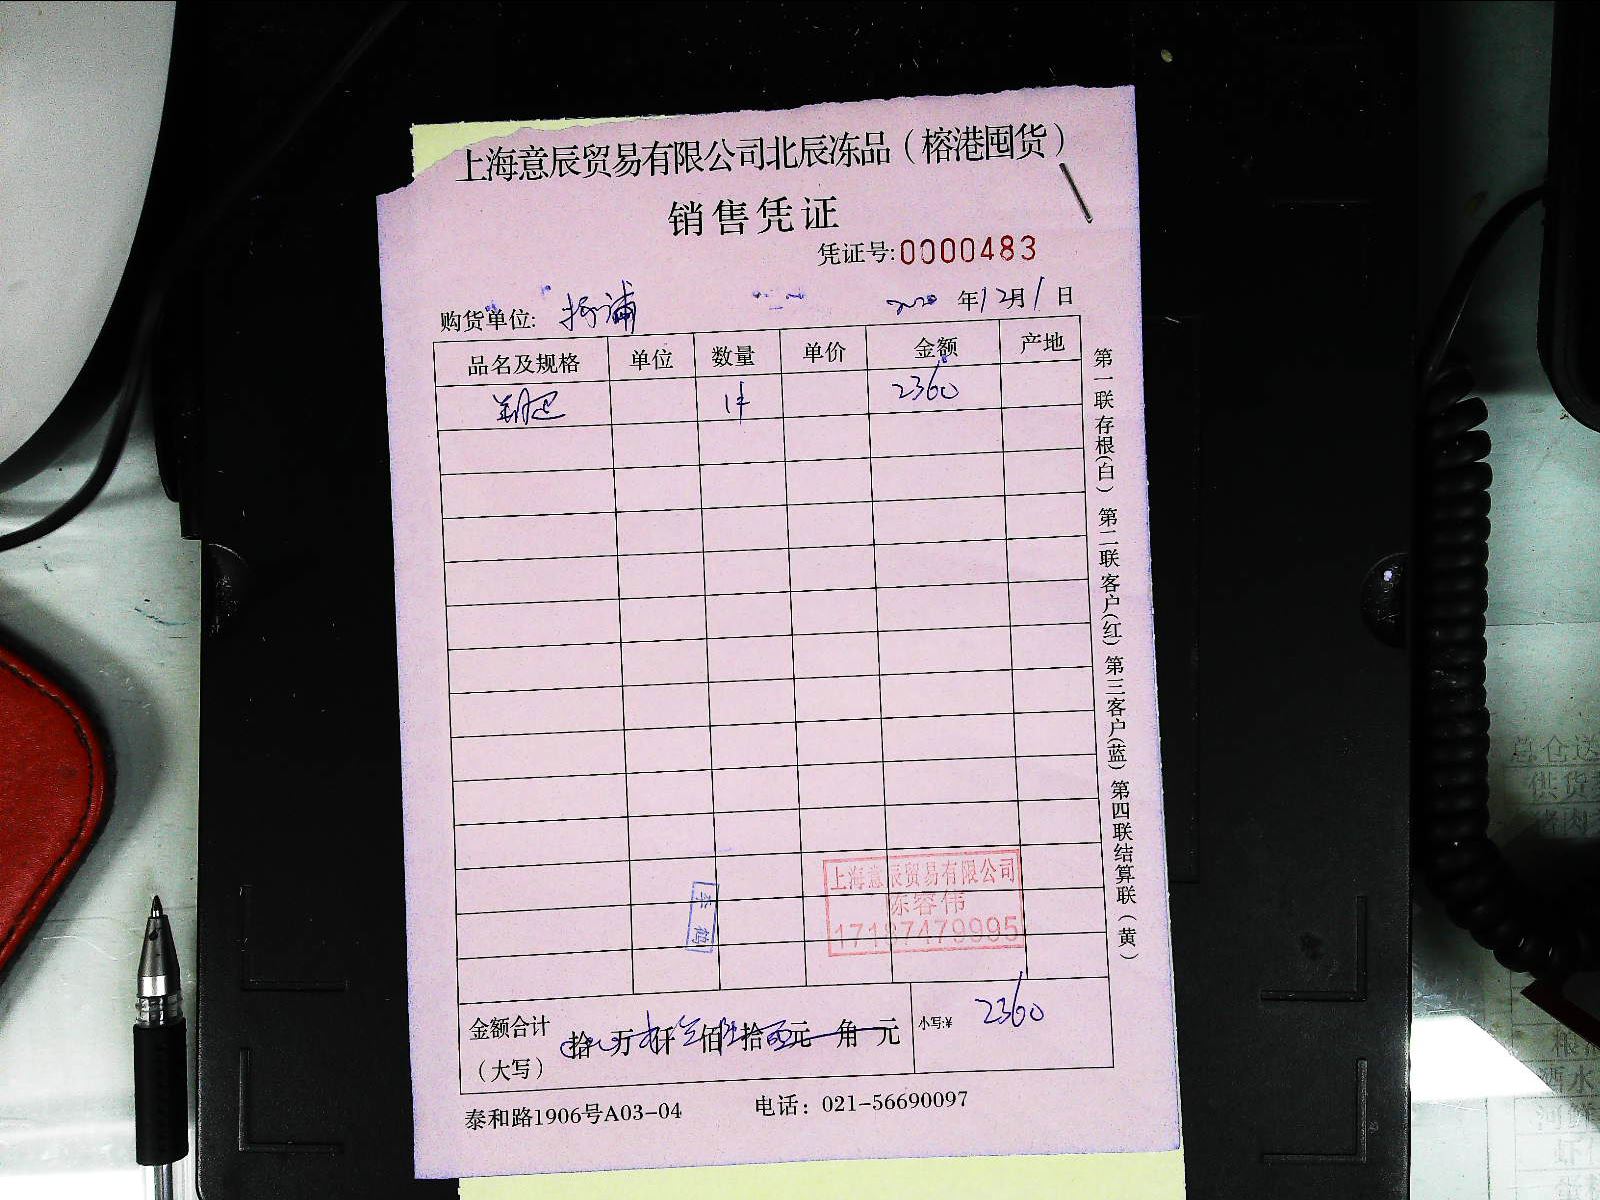 上海意辰贸易有限公司北辰冻品（榕港囤货）
销售凭证
凭证号:0000483
购货单位: 杨浦 2020年12月1日
品名及规格 单位 数量 单价 金额 产地
1件 2360
第一联存根(白) 第二联客户(红) 第三客户(蓝) 第四联结算联(黄)
李鹤
上海意辰贸易有限公司
陈容伟
17187479995
金额合计 拾 万 仟 佰 拾 元 角 元 小写:¥ 2360
（大写）
泰和路1906号A03-04 电话：021-56690097
总仓送
供货
猪肉
粮油
酒水
河鲜